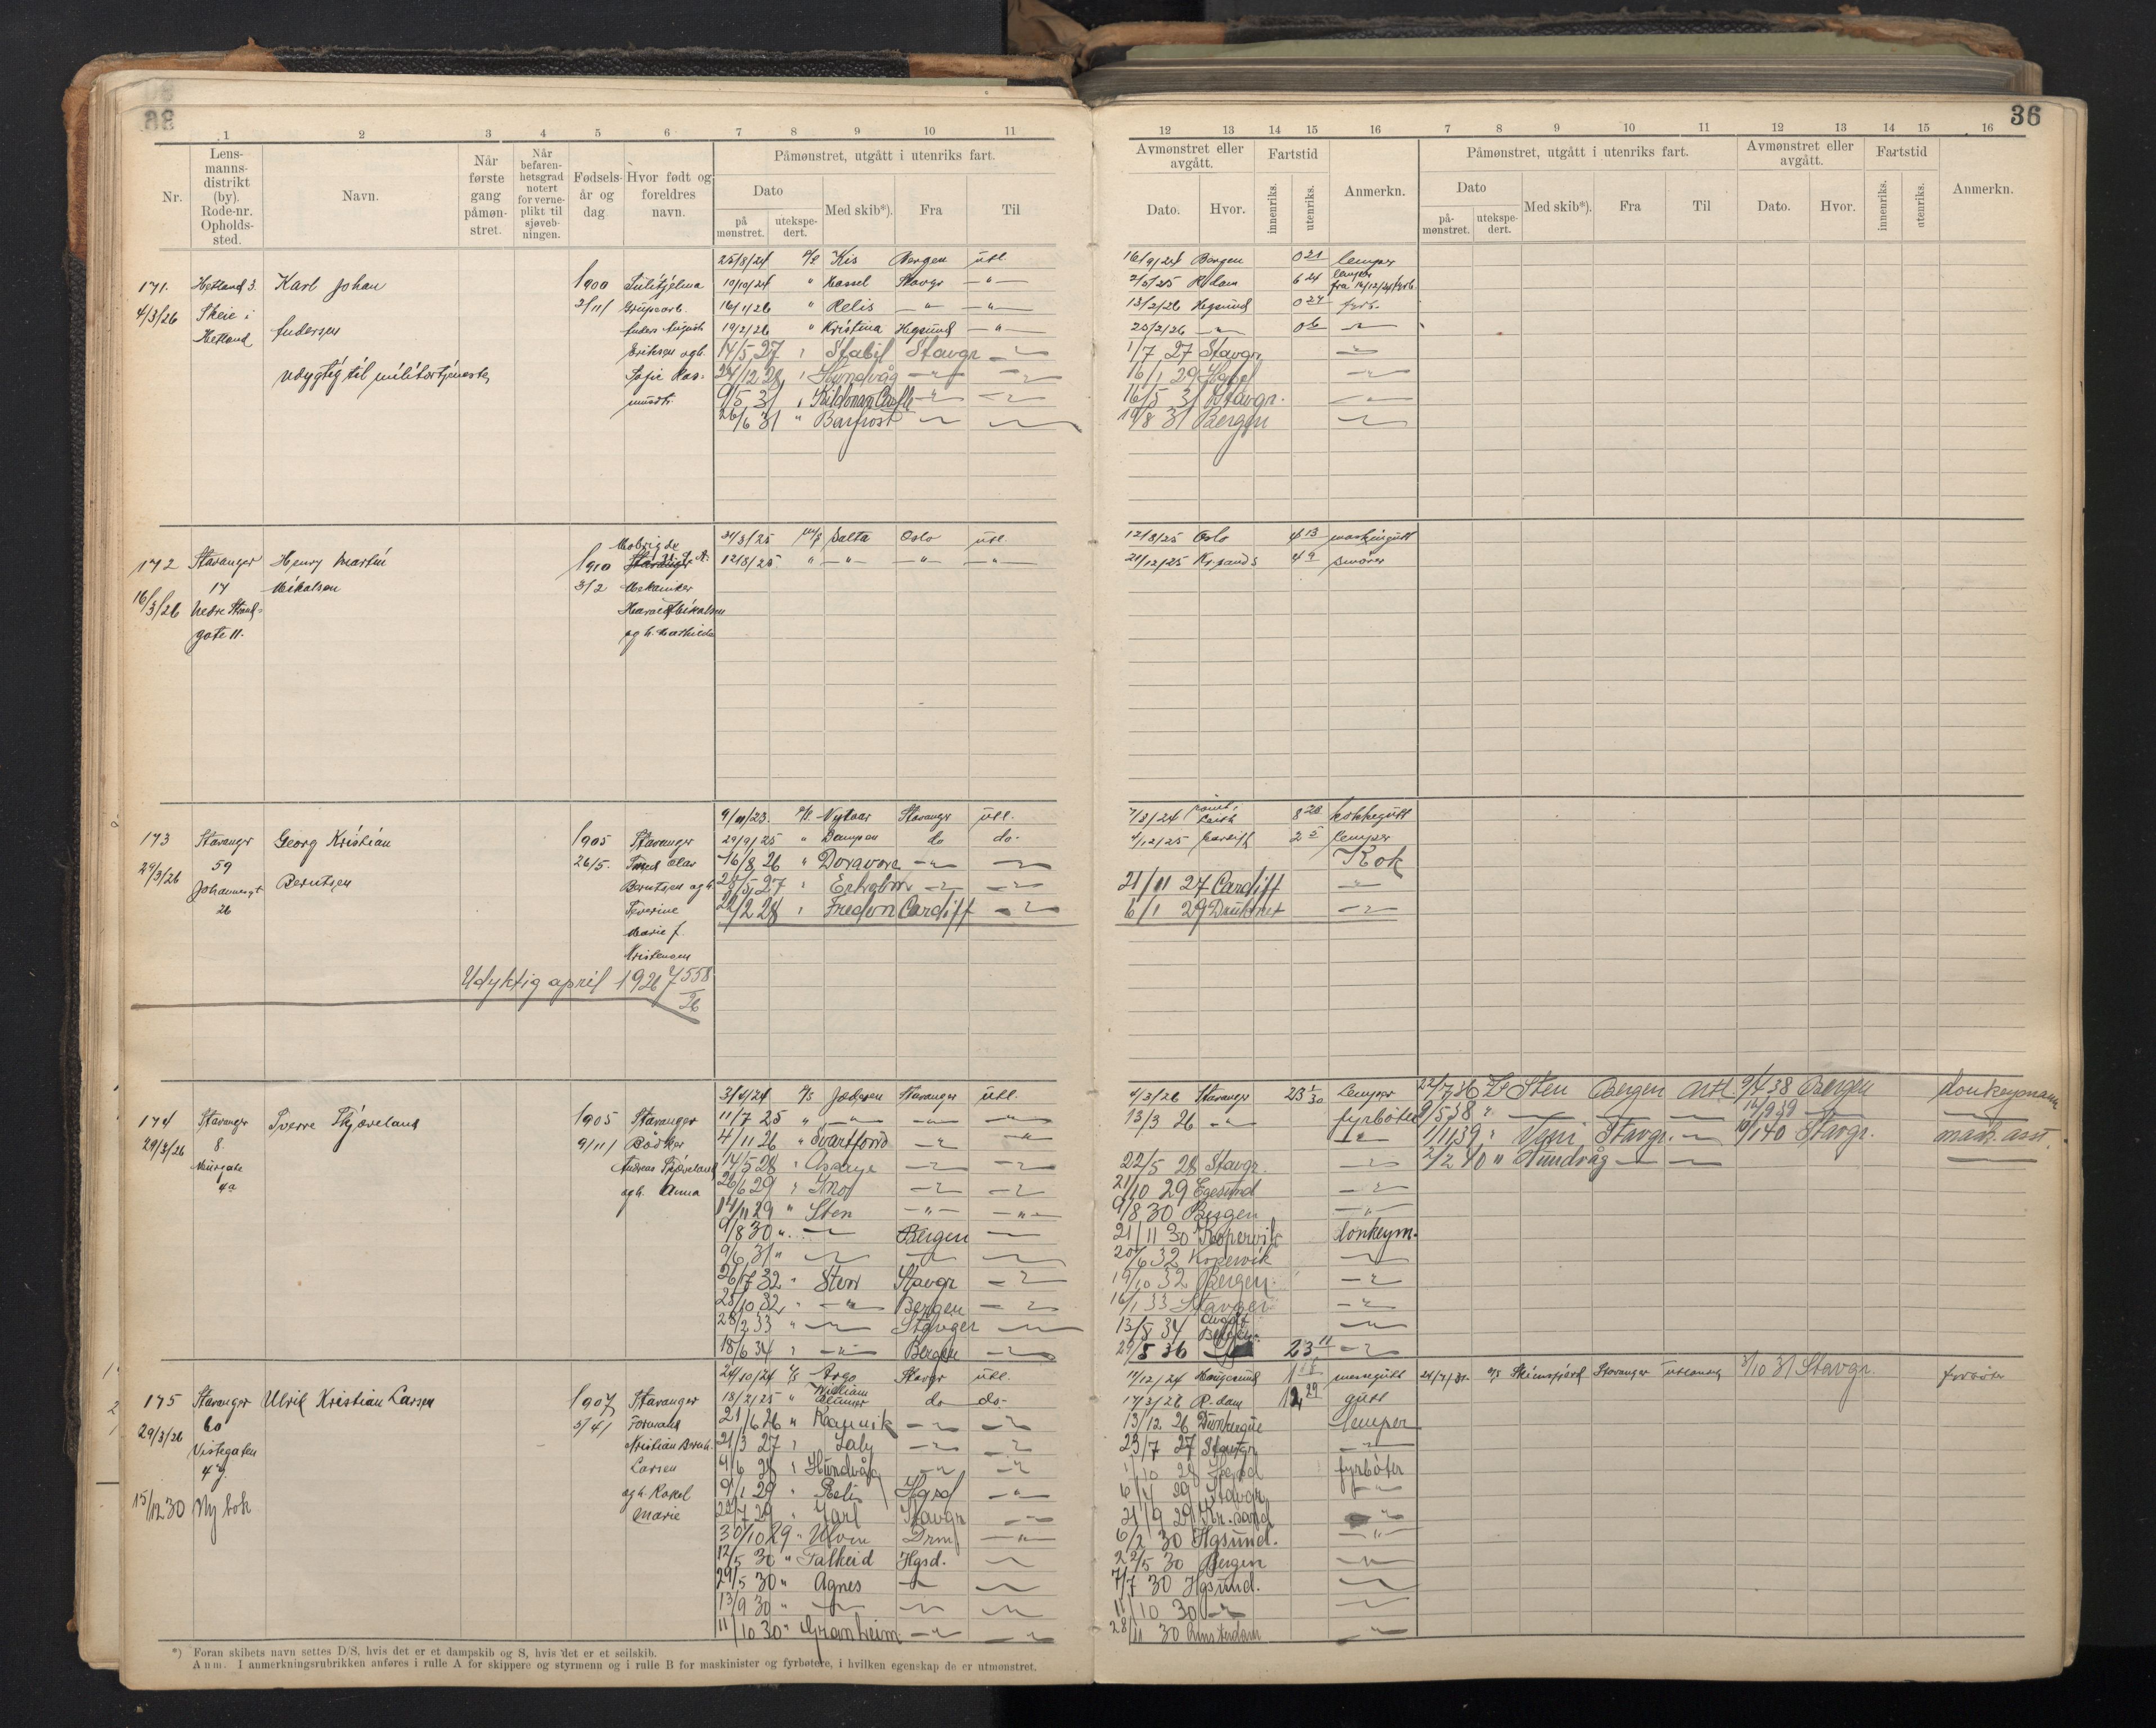 36
1 2 3 4 5 6 7 8 9 10 11
Nr.
Lens-
manns-
distrikt
(by).
Rode-nr.
Opholds-
sted.
Navn.
Når
første
gang
påmøn-
stret.
Når
befaren-
hetsgrad
notert
for verne-
plikt til
sjøveb-
ningen.
Fødsels-
år og
dag
Hvor født og
foreldres
navn.
Påmønstret, utgått i utenriks fart.
Dato
på
mønstret.
utekspe-
dert.
Med skib*).
Fra
Til
12 13 14 15 16 7 8 9 10 11 12 13 14 15 16
Avmønstret eller
avgått.
Dato.
Hvor.
Fartstid
innenriks.
utenriks.
Anmerkn.
Påmønstret, utgått i utenriks fart.
Dato
på-
mønstret.
utekspe-
dert.
Med skib*).
Fra
Til
Avmønstret eller
avgått.
Dato.
Hvor.
Fartstid
innenriks.
utenriks.
Anmerkn.
171. Hetland 3. Karl Johan 1900
4/3/26 Skeie i Andersen 2/11
Hetland
Udygtig til militærtjeneste
Anders August
Eriksen og h.
25/8/24 Kis Bergen utl. 16/9/24 Bergen 0 21 lemper
19/10/24 " Hassel Stavgr —"— 2/5/25 R.dam 6 24 lemper
16/1/26 " Relis —"— —"— 13/2/26 Hgsund 0 27 fyrb.
19/2/26 " Kristina Hgsund —"— 20/2/26 —"— 0 6 —"—
14/5 27 " Stabil Stavgr —"— 1/7 27 Stavgr —"—
24/12 28 " Hundvåg —"— —"— 16/1 29 —"—
9/5 31 " —"— —"— 16/5 31 Stavgr. —"—
26/6 31 " Barfrost —"— —"— 19/8 31 Bergen —"—
172 Stavanger Henry Martin 1910
16/3/26 17 Mikalsen 3/2
Nedre Strand-
gate 11.
Mekaniker
Harald Mikalsen
og h. Mathilde
24/3/25 M/S Salta Oslo utl. 12/8/25 Oslo 4 13 maskingutt
12/8/25 " —"— —"— —"— 21/12/25 Kr.sand S 4 9 smører
173 Stavanger Georg Kristian 1905 Stavanger
29/3/26 59 Berntsen 26/5.
Johannesgt
26
Berntsen og h.
Severine
Marie f.
Kristensen
9/11/23. Stavanger utl. 7/8/24 Leith 8 28 kokkegutt
29/9/25 " Dampen do do. 4/12/25 Cardiff 2 5 lemper
16/8 26 " Doravore —"— —"— Kok
28/5 27 " —"— —"— 21/11 27 Cardiff —"—
22/2 28 " Fredon Cardiff —"— 6/1 29 —"—
Udyktig april 1926 7558/26
174 Stavanger Sverre Skjæveland 1905 Stavanger
29/3/26 8. 9/11 Bødker
Nürgate Andreas Skjæveland
4a og h. Anna
3/4/24 D/S Jæderen Stavanger utl. 4/3/26 Stavanger 23 1/30 Lemper
11/7 25 " —"— —"— —"— 13/3 26 —"— fyrbøter
4/11 26 " Svartfond —"— —"— —"—
14/5 28 " —"— —"— 22/5 28 Stavgr. —"—
26/6 29 " Snof —"— —"— 21/10 29 Egesund —"—
14/11 29 " Sten —"— —"— 9/8 30 Bergen —"—
9/8 30 " —"— Bergen —"— 21/11 30 Kopervik donkeym.
9/6 31 " —"— —"— —"— 20/6 32 Kopervik —"—
26/7 32 " Sten Stavgr —"— 19/10 32 Bergen. —"—
28/10 32 " —"— Bergen —"— 16/1 33 Stavger —"—
28/2 33 " —"— Stavger —"— 13/8 34 Bergen —"—
18/6 34 " —"— Bergen —"— 29/5 36 23 11 —"—
22/7 36 Sten Bergen 9/4 38 Bergen donkeymann
9/5 38 " —"— —"— —"— 12/9 39 —"—
1/11 39 " Veni Stavgr. —"— 10/1 40 Stavgr. mask. asst.
2/2 40 " Hundvåg —"— —"—
175 Stavanger Ulrik Kristian Larsen 1907 Stavanger
29/3/26 60 5/4 Formand
Vistegaten Kristian Bernh.
4 g. Larsen
og h. Rakel
Marie
15/12 30 Ny bok
24/10/24 D/S Argo Stavgr utl. 17/12/24 Haugesund messgutt
18/2/25 " William Blumer do do. 17/3/26 R-dam 12 29 gutt
21/6 26 " Ragnvik —"— —"— 13/12 26 Dunkerque lemper
21/3 27 " Laly —"— —"— 23/7 27 Stavgr —"—
9/6 28 " Hundvåg —"— —"— 1/10 28 Hgsd fyrbøter
9/1 29 " Relis Hgsd —"— 6/4 29 Stavgr —"—
22/7 29 " Jarl Stavgr —"— 21/9 29 Kr.sand —"—
30/10 29 " Ulven Drm —"— 6/2 30 Hgsund. —"—
12/5 30 " Falkeid Hgsd. —"— 22/5 30 Bergen —"—
29/5 30 " Agnes —"— —"— 7/7 30 Hgsund. —"—
13/9 30 " —"— —"— —"— 11/10 30 —"— —"—
11/10 30 " Granheim —"— —"— 28/11 30 Amsterdam —"—
24/7/31. D/S Skiensfjord Stavanger 3/10 31 Stavgr. fyrbøter
*) Foran skibets navn settes D/S, hvis det er et dampskib og S, hvis det er et seilskib.
Anm. I anmerkningsrubrikken anføres i rulle A for skippere og styrmenn og i rulle B for maskinister og fyrbøtere, i hvilken egenskap de er utmønstret.